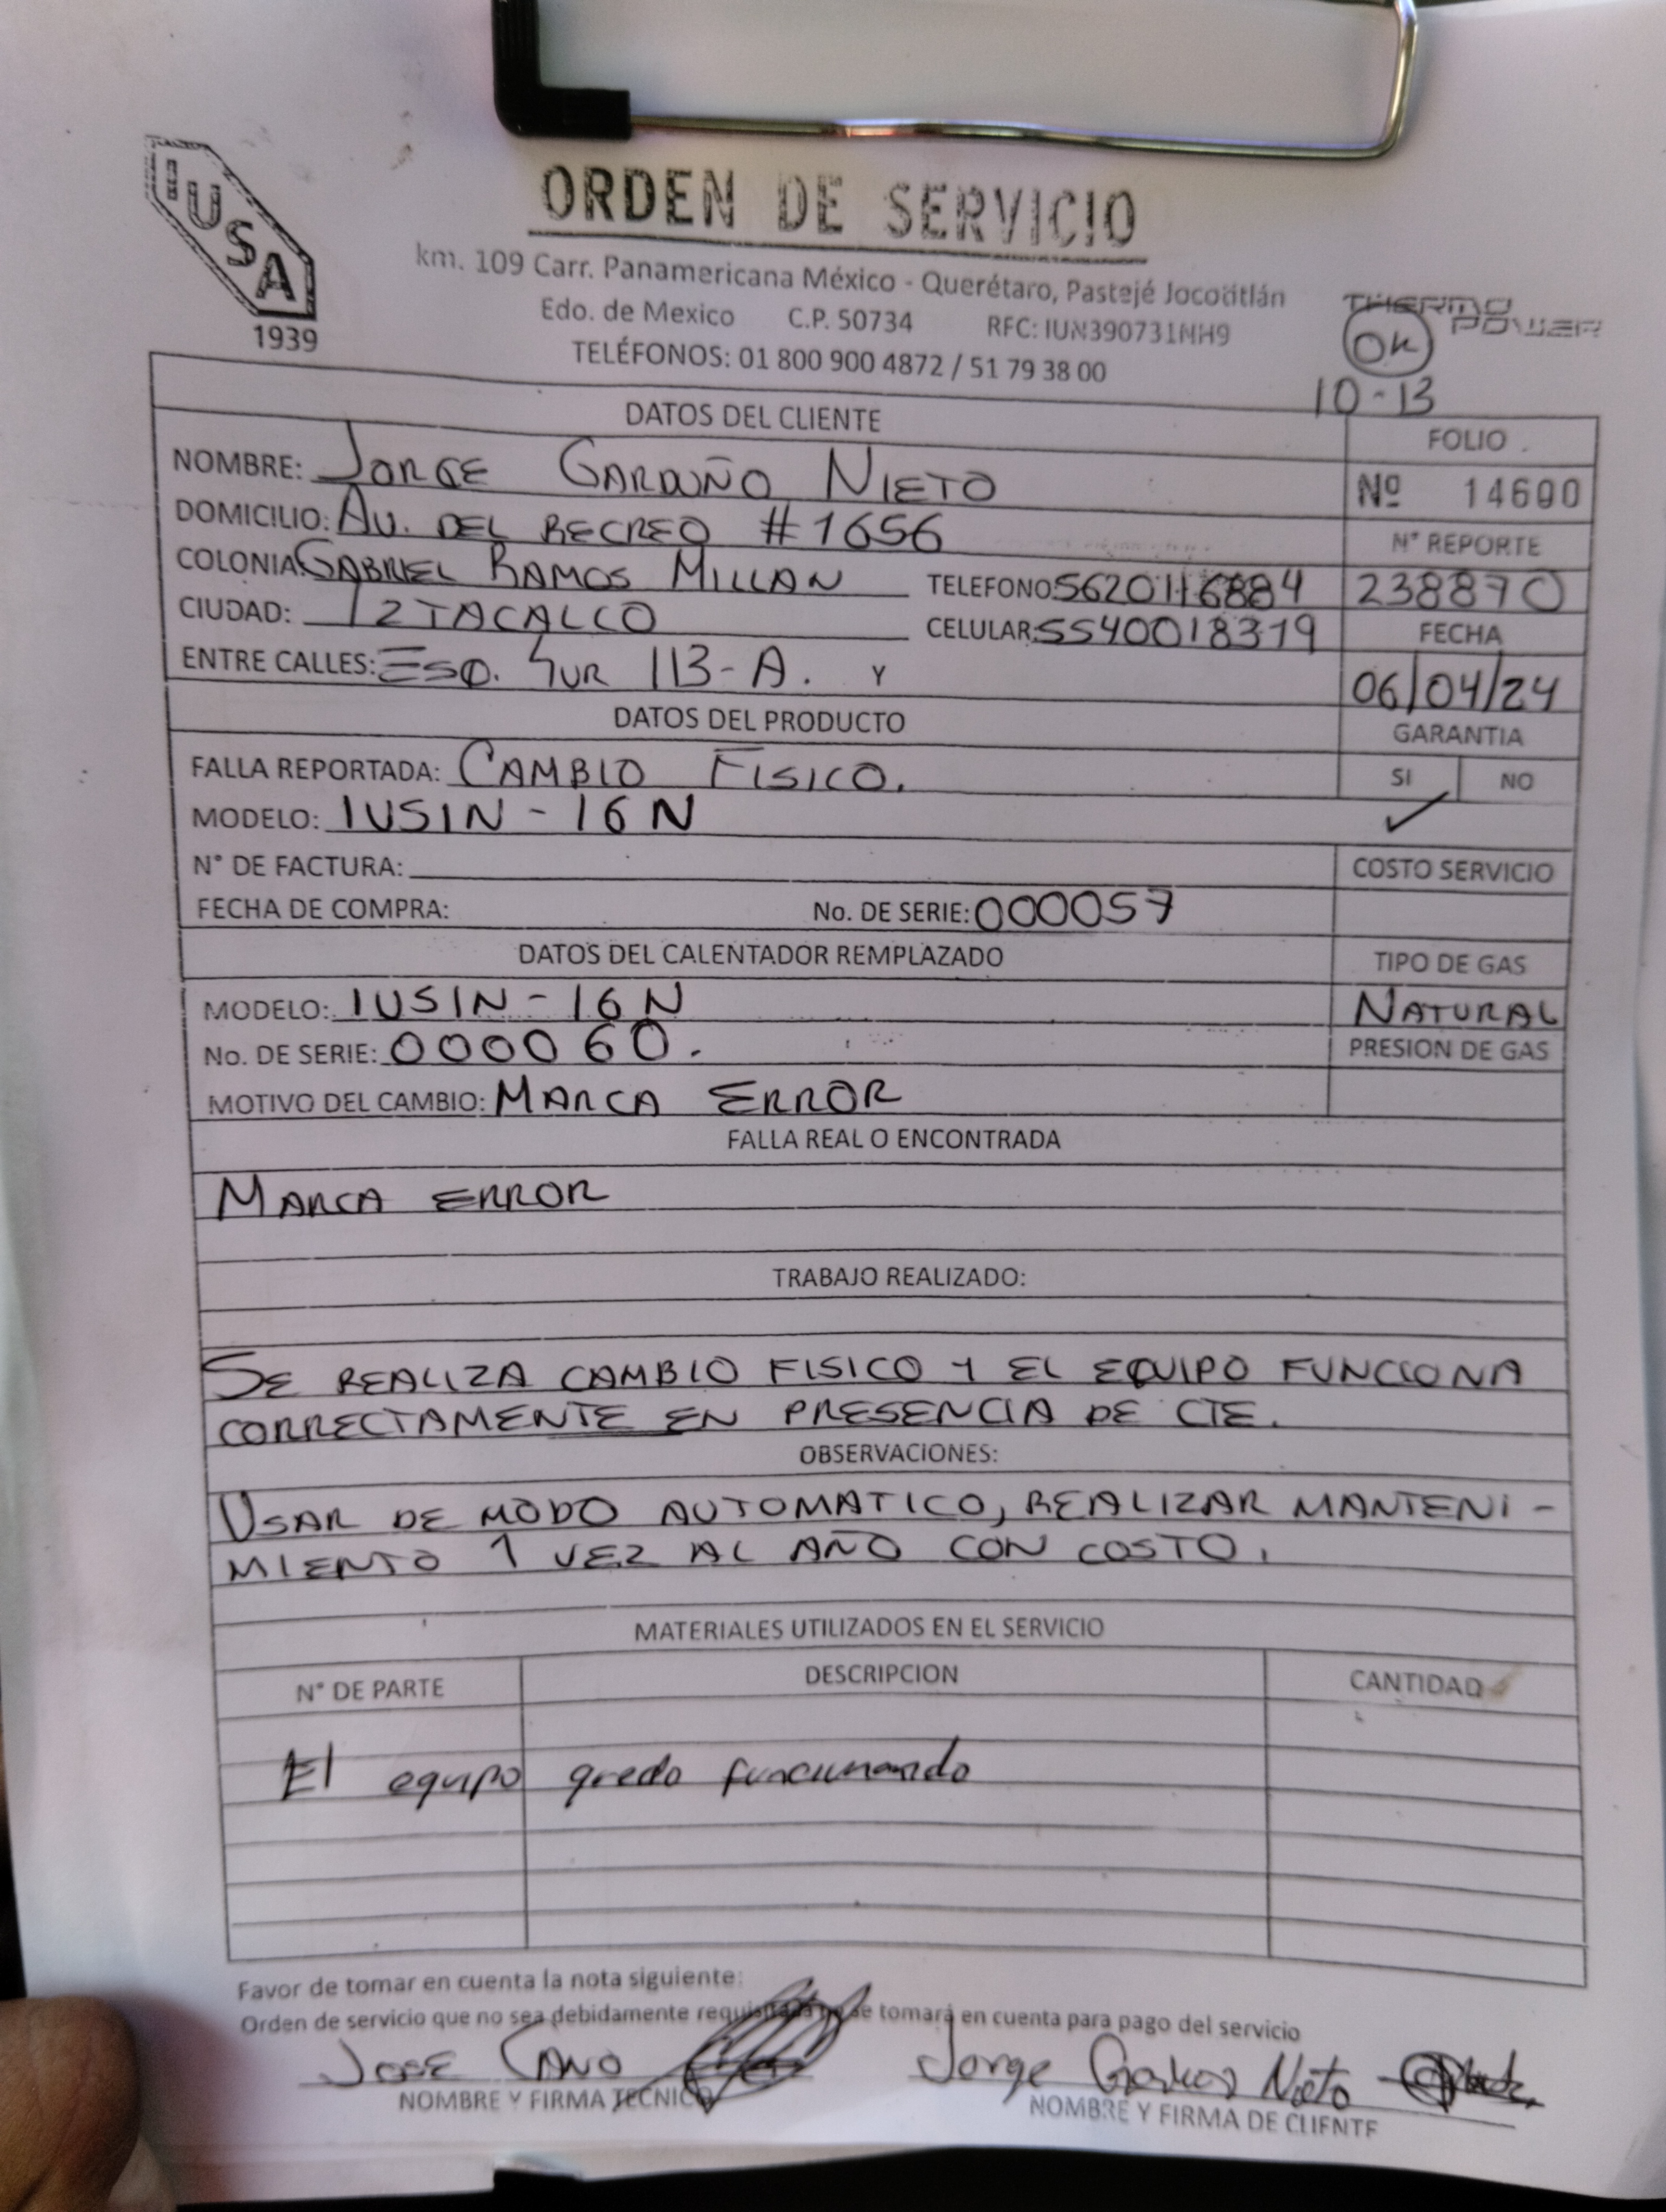 IUSA
1939
ORDEN DE SERVICIO
km. 109 Carr. Panamericana México - Querétaro, Pastejé Jocotitlán
Edo. de Mexico C.P. 50734 RFC: IUN390731NH9
TELÉFONOS: 01 800 900 4872 / 51 79 38 00
THERMO POWER
OK
10-13
DATOS DEL CLIENTE
FOLIO
NOMBRE: JORGE GARDUÑO NIETO
Nº 14600
DOMICILIO: AV. DEL RECREO #1656
N° REPORTE
COLONIA: GABRIEL RAMOS MILLAN TELEFONO: 5620116884
238870
CIUDAD: IZTACALCO CELULAR: 5540018319
FECHA
ENTRE CALLES: ESQ. SUR 113-A. Y
06/04/24
DATOS DEL PRODUCTO
GARANTIA
FALLA REPORTADA: CAMBIO FISICO.
SI NO
MODELO: IUSIN-16N
✓
N° DE FACTURA:
COSTO SERVICIO
FECHA DE COMPRA: No. DE SERIE: 000057
DATOS DEL CALENTADOR REMPLAZADO
TIPO DE GAS
MODELO: IUSIN-16N
NATURAL
No. DE SERIE: 000060.
PRESION DE GAS
MOTIVO DEL CAMBIO: MARCA ERROR
FALLA REAL O ENCONTRADA
MARCA ERROR
TRABAJO REALIZADO:
SE REALIZA CAMBIO FISICO Y EL EQUIPO FUNCIONA
CORRECTAMENTE EN PRESENCIA DE CTE.
OBSERVACIONES:
USAR DE MODO AUTOMATICO, REALIZAR MANTENI-
MIENTO 1 VEZ AL AÑO CON COSTO.
MATERIALES UTILIZADOS EN EL SERVICIO
N° DE PARTE DESCRIPCION CANTIDAD
El equipo quedo funcionando
Favor de tomar en cuenta la nota siguiente:
Orden de servicio que no sea debidamente requisitada no se tomará en cuenta para pago del servicio
JOSE CANO Jorge Garduño Nieto
NOMBRE Y FIRMA TECNICO NOMBRE Y FIRMA DE CLIENTE